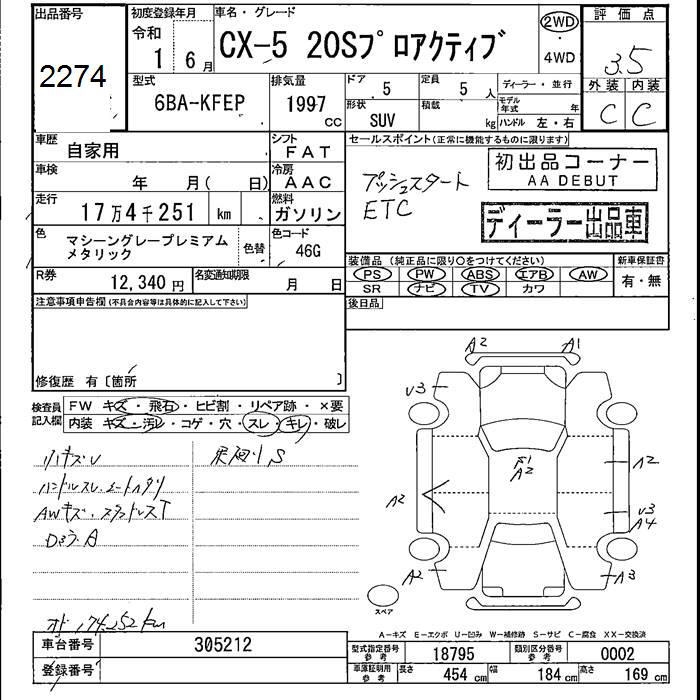 出品番号
2274
初度登録年月
令和
1 6月
車名・グレード
CX-5 20Sプロアクティブ
2WD
・
4WD
評価点
3.5
外装 内装
C C
型式
6BA-KFEP
排気量
1997 cc
ドア
5
定員
5 人
形状
SUV
積載
kg
ディーラー・並行
モデル年式 年
ハンドル 左・右
車歴
自家用
シフト
FAT
車検
年 月( 日)
冷房
AAC
走行
17万4千251 km
燃料
ガソリン
色
マシーングレープレミアム
メタリック
色替
色コード
46G
R券
12,340 円
名変通知期限
月 日
セールスポイント(正常に機能するものに限ります)
プッシュスタート
ETC
初出品コーナー
AA DEBUT
ディーラー出品車
装備品 (純正品に限り○をつけてください)
PS PW ABS エアB AW
SR ナビ TV カワ
新車保証書
有・無
後日品
注意事項申告欄(不具合内容等は具体的に記入して下さい)
修復歴 有〔箇所 〕
検査員
記入欄
FW キズ・飛石・ヒビ割・リペア跡・×要
内装 キズ・汚レ・コゲ・穴・スレ・キレ・破レ
ハンドルスレ
AWキズ
A2 A1
V3
F1
A2
A2
A2
V3
A4
A2
A3
スペア
174252km
A-キズ E-エクボ U-凹み W-補修跡 S-サビ C-腐食 XX-交換済
車台番号
305212
登録番号
型式指定番号
参考
18795
類別区分番号
参考
0002
車庫証明用
参考
長さ
454 cm
幅
184 cm
高さ
169 cm